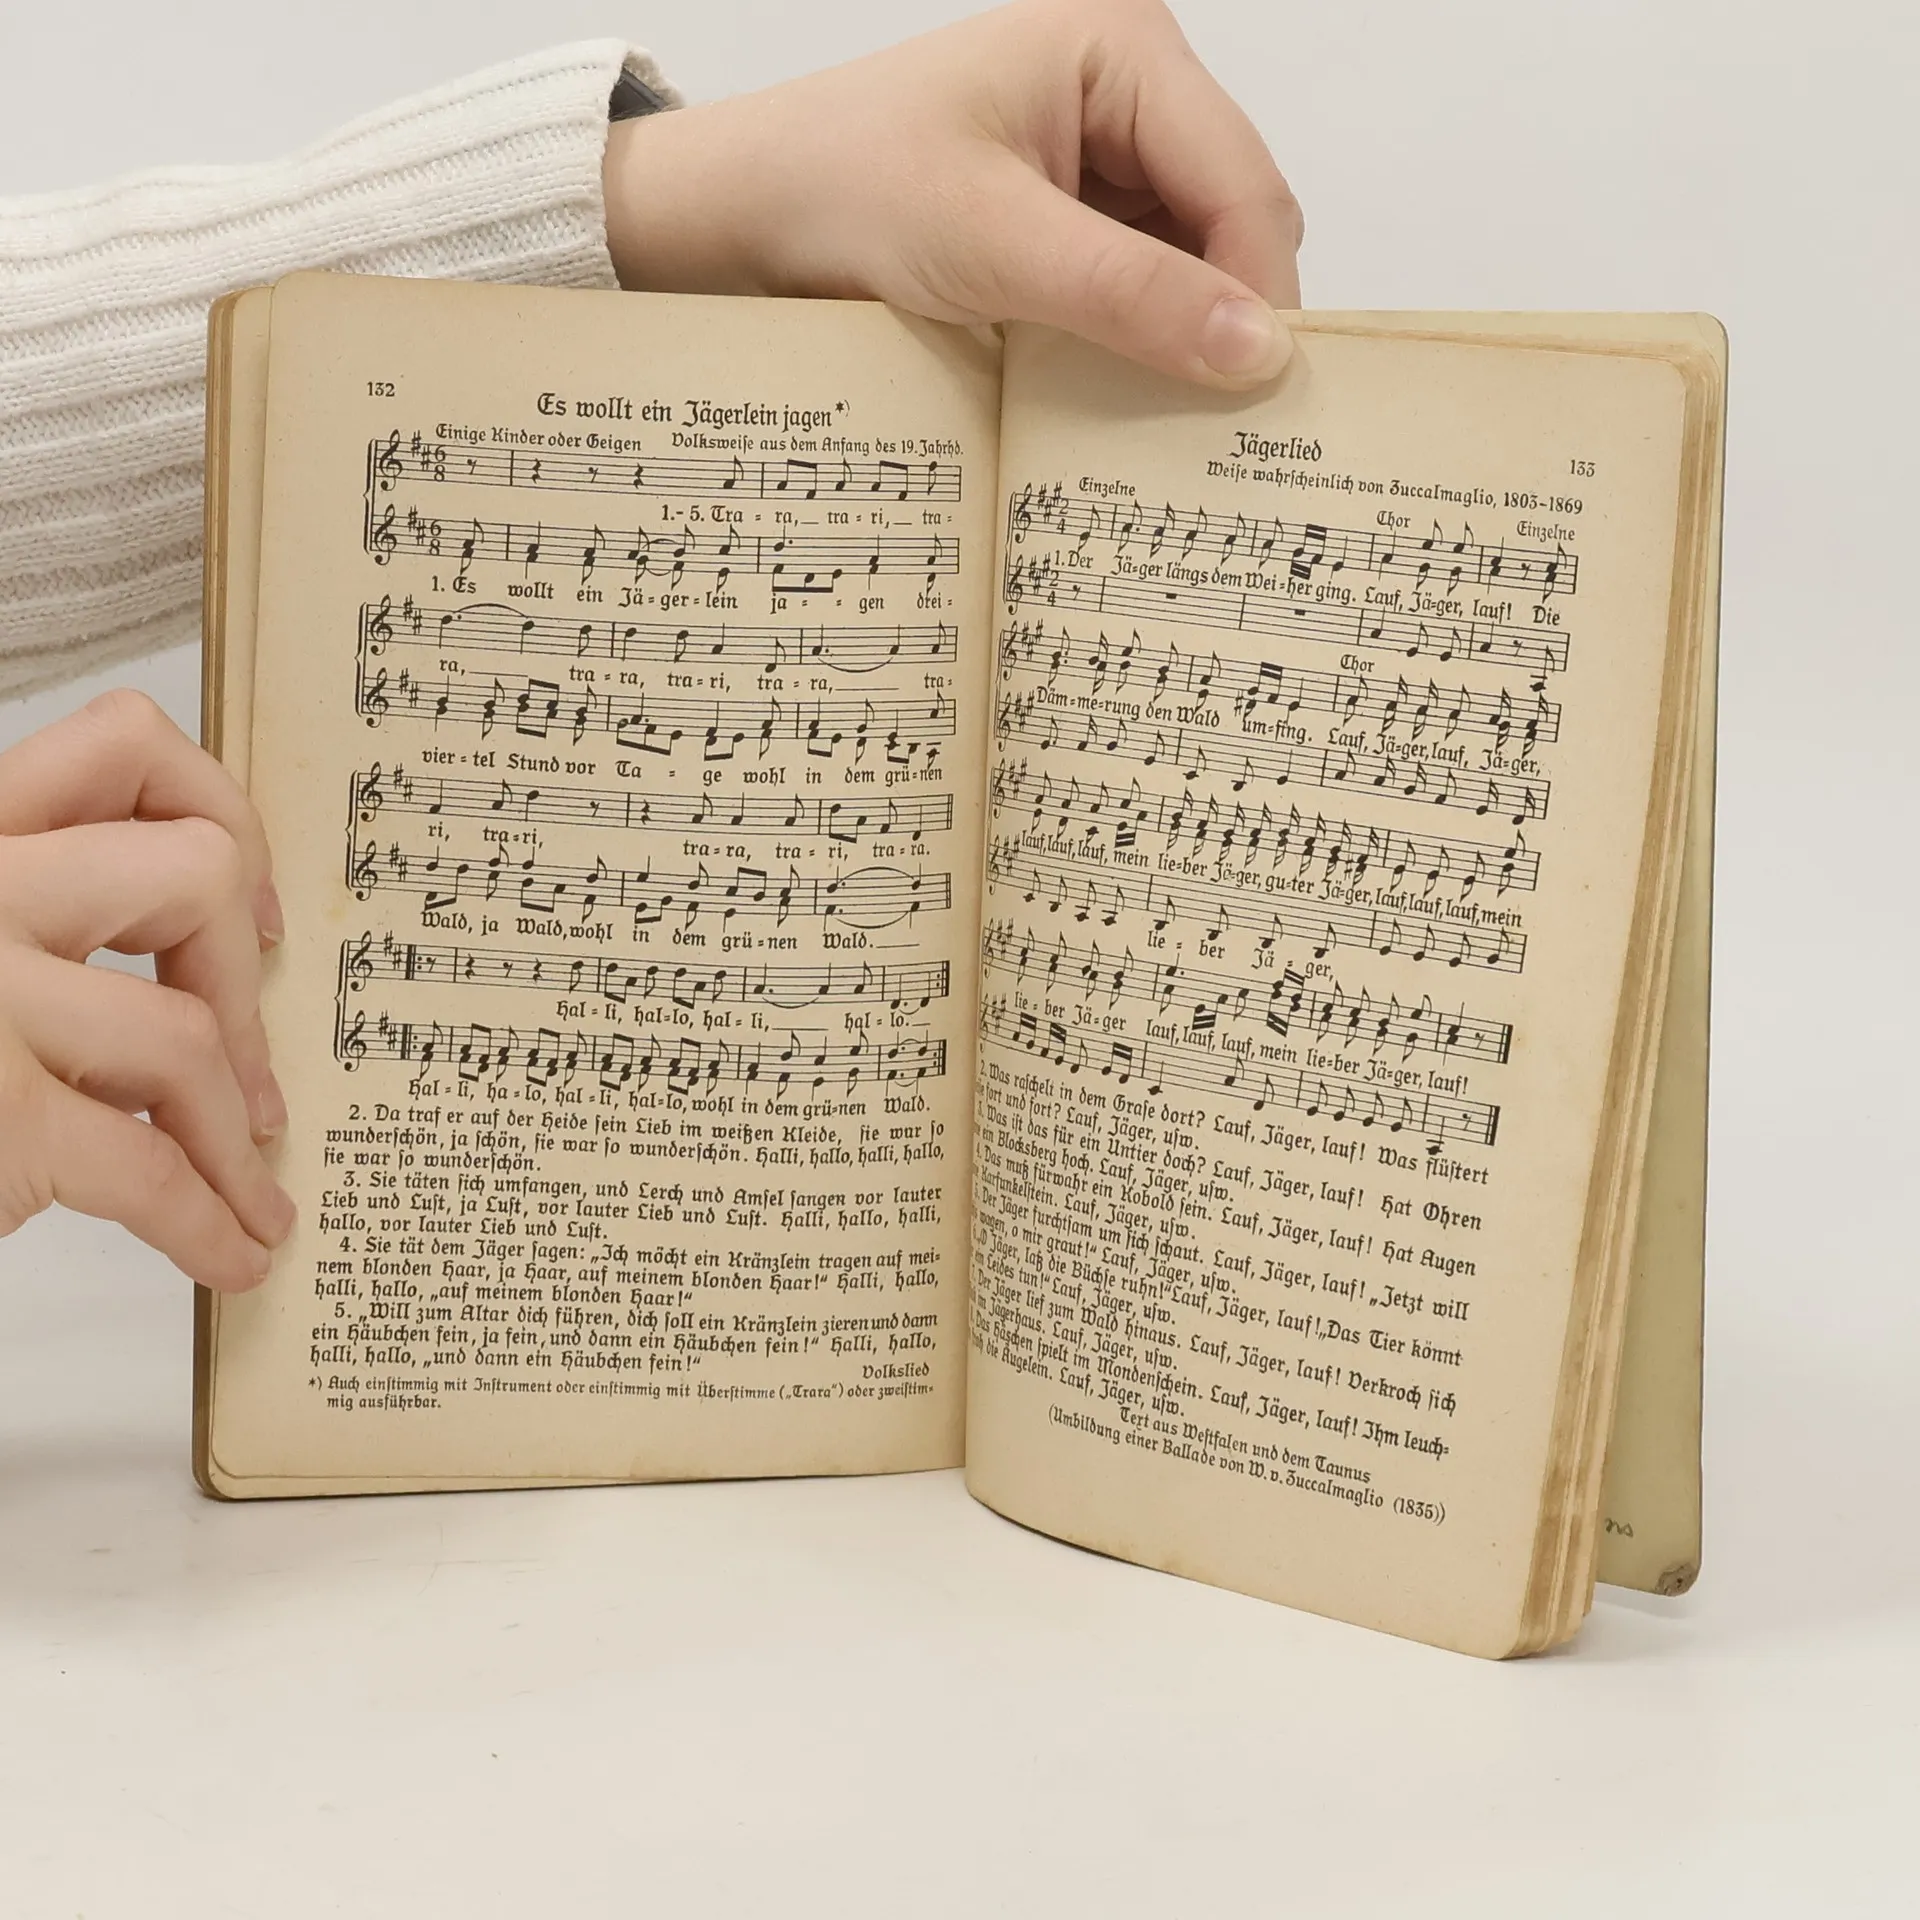 132
Es wollt ein Jägerlein jagen*)
Einige Kinder oder Geigen Volksweise aus dem Anfang des 19. Jahrhd.
1.-5. Tra = ra,__ tra = ri,__ tra =
1. Es wollt ein Jä = ger = lein ja = = gen drei =
ra,____ tra = ra, tra = ri, tra = ra,____ tra =
vier = tel Stund vor Ta = ge wohl in dem grü = nen
ri, tra = ri, tra = ra, tra = ri, tra = ra.
Wald, ja Wald, wohl in dem grü = nen Wald.____
Hal = li, hal = lo, hal = li,____ hal = lo.__
Hal = li, ha = lo, hal = li, hal = lo, wohl in dem grü = nen Wald.
2. Da traf er auf der Heide sein Lieb im weißen Kleide, sie war so
wunderschön, ja schön, sie war so wunderschön. Halli, hallo, halli, hallo,
sie war so wunderschön.
3. Sie täten sich umfangen, und Lerch und Amsel sangen vor lauter
Lieb und Lust, ja Lust, vor lauter Lieb und Lust. Halli, hallo, halli,
hallo, vor lauter Lieb und Lust.
4. Sie tät dem Jäger sagen: „Ich möcht ein Kränzlein tragen auf mei=
nem blonden Haar, ja Haar, auf meinem blonden Haar!“ Halli, hallo,
halli, hallo, „auf meinem blonden Haar!“
5. „Will zum Altar dich führen, dich soll ein Kränzlein zieren und dann
ein Häubchen fein, ja fein, und dann ein Häubchen fein!“ Halli, hallo,
halli, hallo, „und dann ein Häubchen fein!“
Volkslied
*) Auch einstimmig mit Instrument oder einstimmig mit Überstimme („Trara“) oder zweistim=
mig ausführbar.
Jägerlied
133
Weise wahrscheinlich von Zuccalmaglio, 1803-1869
Einzelne Chor Einzelne
1. Der Jä=ger längs dem Wei=her ging. Lauf, Jä=ger, lauf! Die
Chor
Däm=me=rung den Wald um=fing. Lauf, Jä=ger, lauf, Jä=ger,
lauf, lauf, lauf, mein lie=ber Jä=ger, gu=ter Jä=ger, lauf, lauf, lauf, mein
lie = ber Jä = ger,
lie = ber Jä=ger lauf, lauf, lauf, mein lie=ber Jä=ger, lauf!
2. Was raschelt in dem Grase dort? Lauf, Jäger, lauf! Was flüstert
fort und fort? Lauf, Jäger, usw.
3. Was ist das für ein Untier doch? Lauf, Jäger, lauf! Hat Ohren
ein Blocksberg hoch. Lauf, Jäger, usw.
4. Das muß fürwahr ein Kobold sein. Lauf, Jäger, lauf! Hat Augen
Karfunkelstein. Lauf, Jäger, usw.
5. Der Jäger furchtsam um sich schaut. Lauf, Jäger, lauf! „Jetzt will
wagen, o mir graut!“ Lauf, Jäger, usw.
6. „O Jäger, laß die Büchse ruhn!“ Lauf, Jäger, lauf! „Das Tier könnt
ein Leides tun!“ Lauf, Jäger, usw.
7. Der Jäger lief zum Wald hinaus. Lauf, Jäger, lauf! Verkroch sich
im Jägerhaus. Lauf, Jäger, usw.
Das Häschen spielt im Mondenschein. Lauf, Jäger, lauf! Ihm leuch=
die Äugelein. Lauf, Jäger, usw.
Text aus Westfalen und dem Taunus
(Umbildung einer Ballade von W. v. Zuccalmaglio (1835))